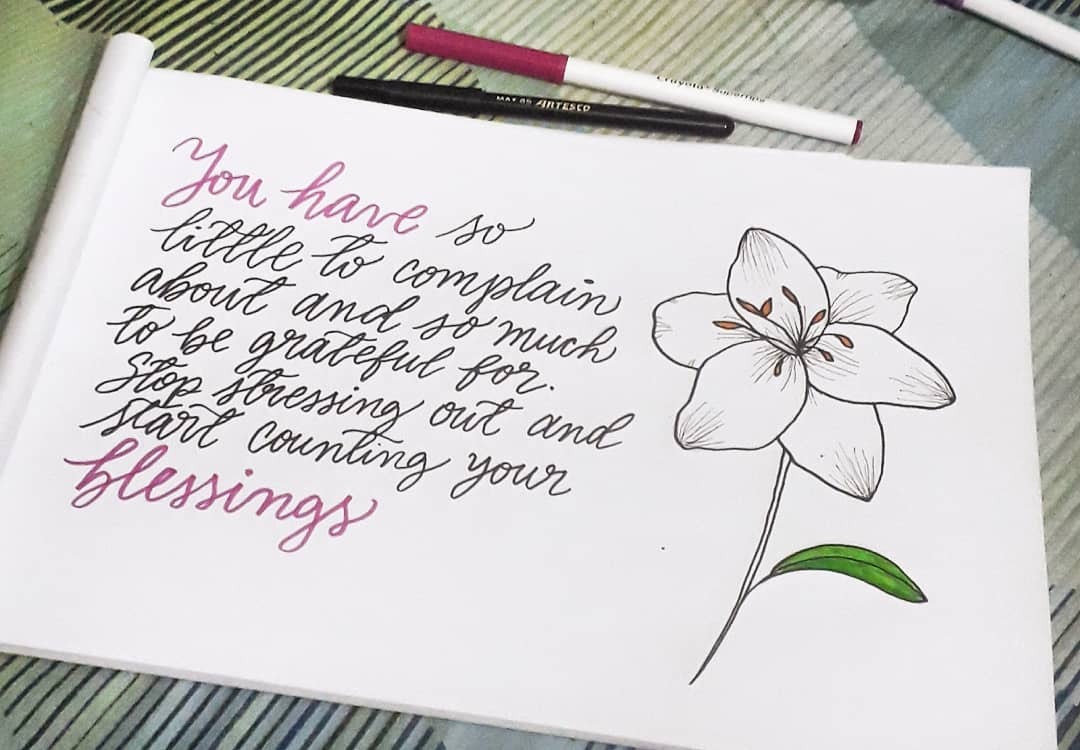 You have so
little to complain
about and so much
to be grateful for.
Stop stressing out and
start counting your
blessings
ARTESCO
Crayola Supertips